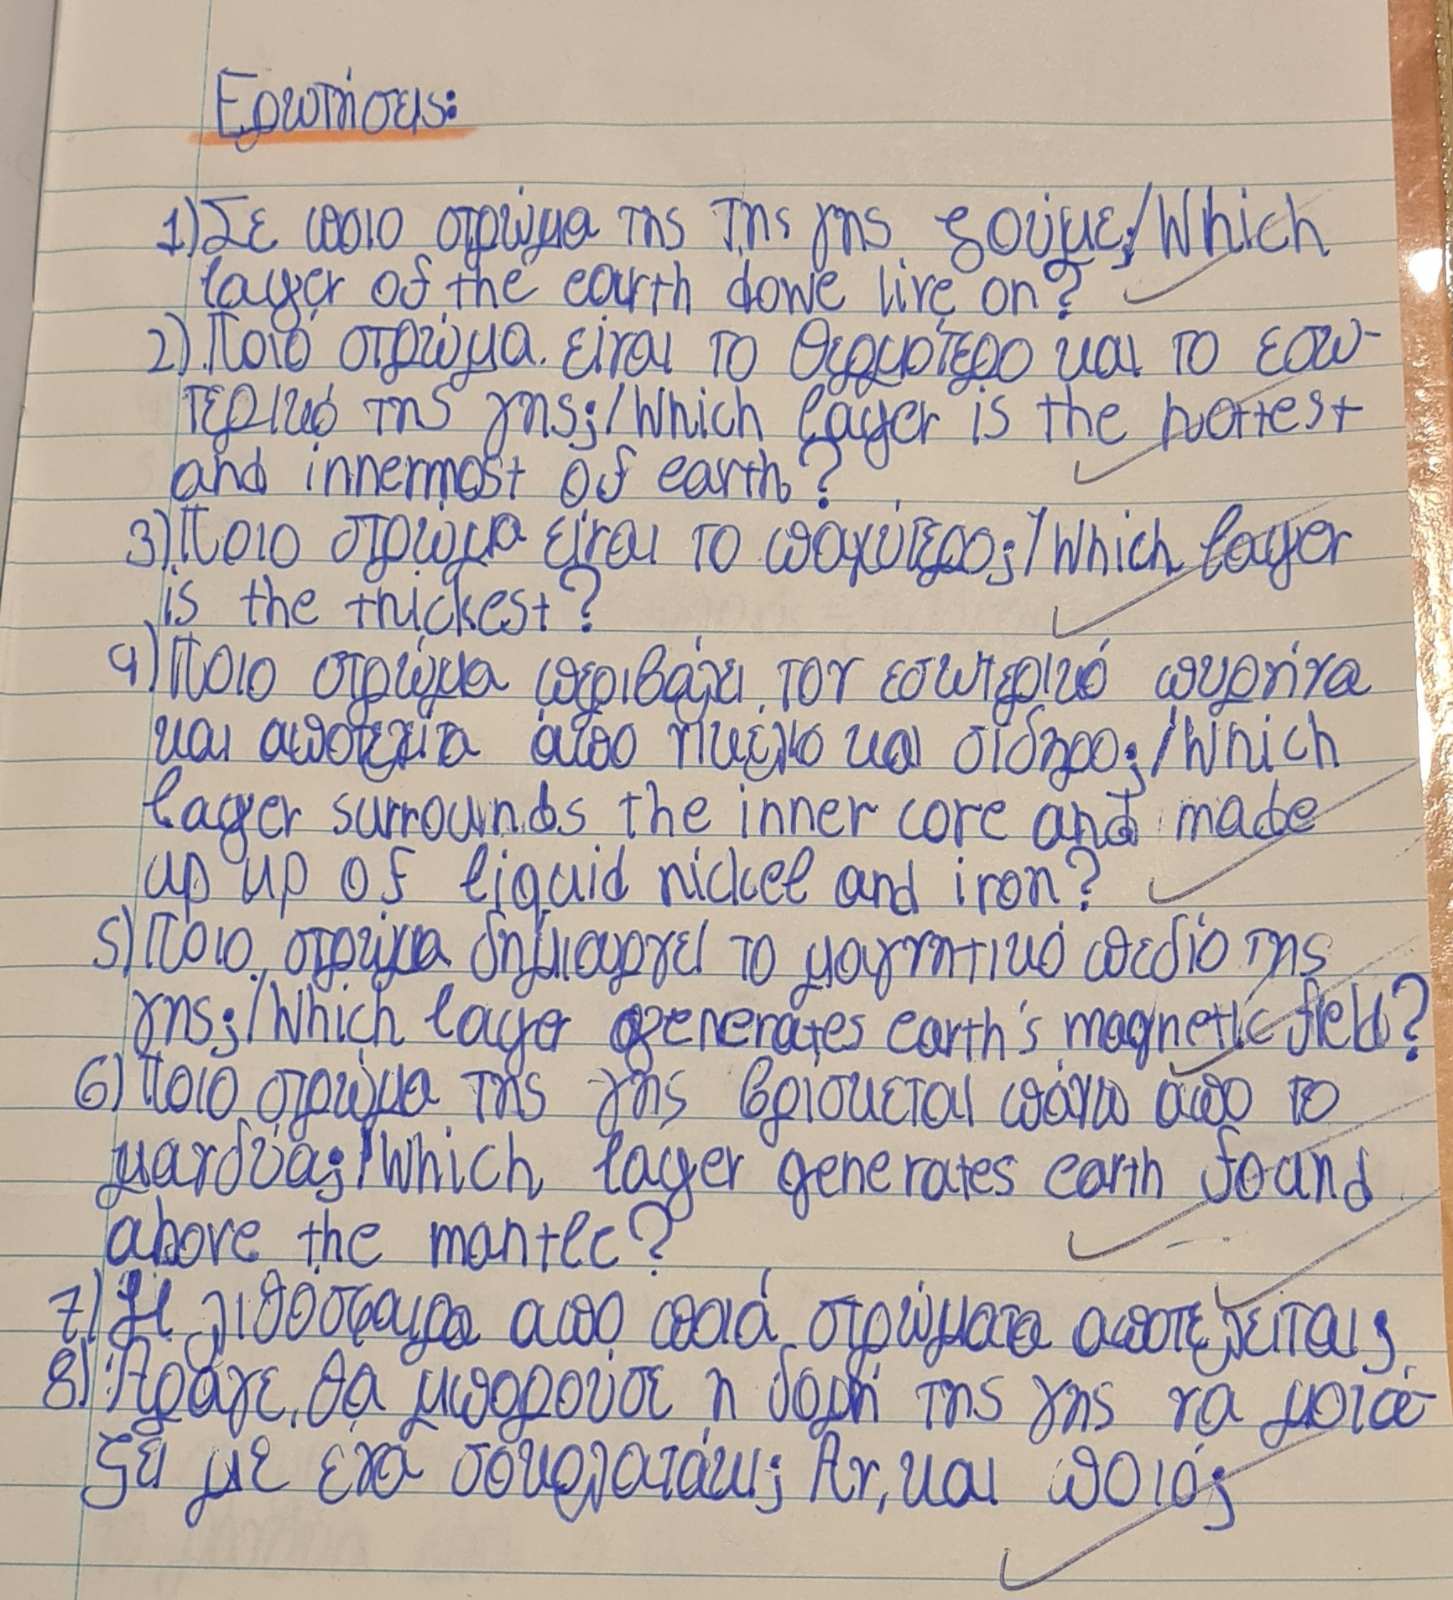 Ερωτήσεις:
1) Σε ποιο στρώμα της της γης ζούμε;/Which
layer of the earth dowe live on?
2) Ποιό στρώμα είναι το θερμότερο και το εσω-
τερικό της γης;/Which layer is the hottest
and innermost of earth?
3) Ποιο στρώμα είναι το παχύτερο;/Which layer
is the thickest?
4) Ποιο στρώμα περιβάλει τον εσωτερικό πυρήνα
και αποτελεία άπο νικέλιο και σίδηρο;/Which
layer surrounds the inner core and made
up up of liquid nickel and iron?
5) Ποιο στρώμα δημιουργεί το μαγνητικό πεδίο της
γης;/Which layer generates earth's magnetic field?
6) Ποιο στρώμα της γης βρίσκεται πάνω απο το
μανδύα;/Which layer generates earth found
above the mantle?
7) Η λιθόσφαιρα απο ποιά στρώματα αποτελείται;
8) Άραγε, θα μπορούσε η δομή της γης να μοιά-
ζει με ένα σοκολατάκι; Αν, και ποιό;